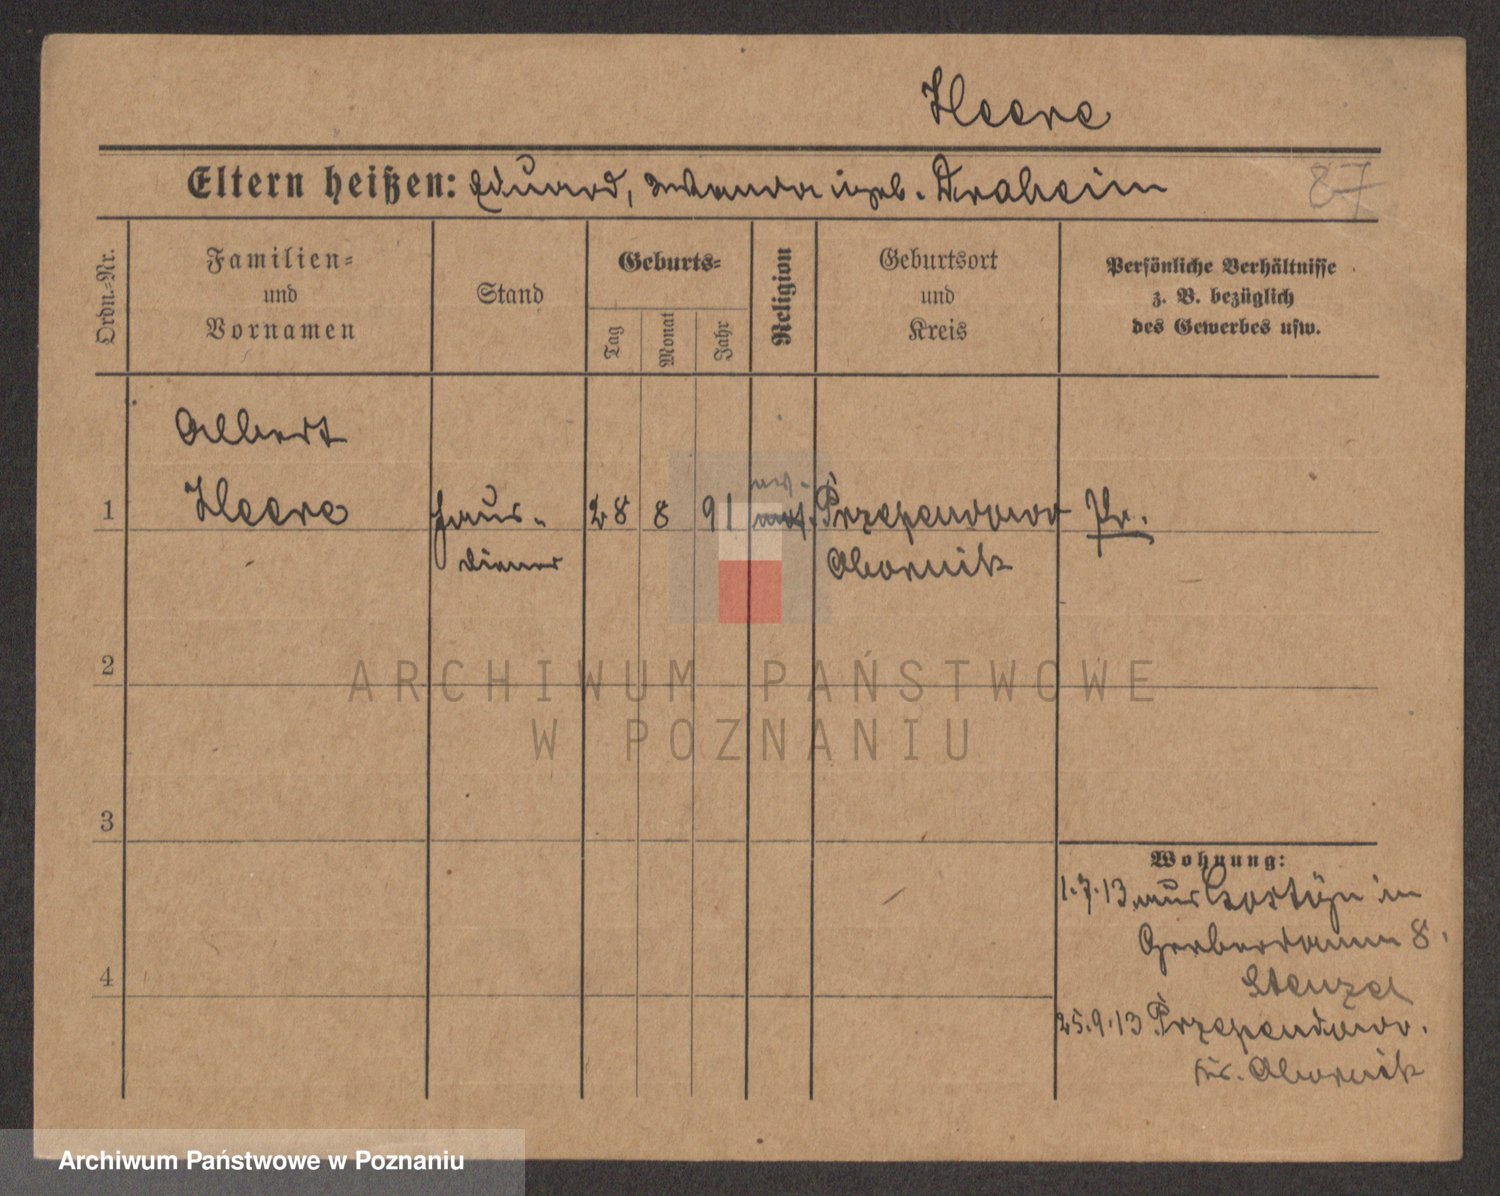 Heere
Eltern heißen: Eduard, Wanda geb. Draheim
87
Ordn.-Nr.
Familien-
und
Vornamen
Stand
Geburts-
Tag
Monat
Jahr
Religion
Geburtsort
und
Kreis
Persönliche Verhältnisse
z. B. bezüglich
des Gewerbes usw.
Albert
1 Heere Haus- 28 8 91 ev. Przependowo Pr.
diener Obornik
2
3
4
Wohnung:
1.7.13 aus Gostyn in
Gerberdamm 8.
Stenzel
25.9.13 Przependowo.
Kr. Obornik
ARCHIWUM PAŃSTWOWE
W POZNANIU
Archiwum Państwowe w Poznaniu